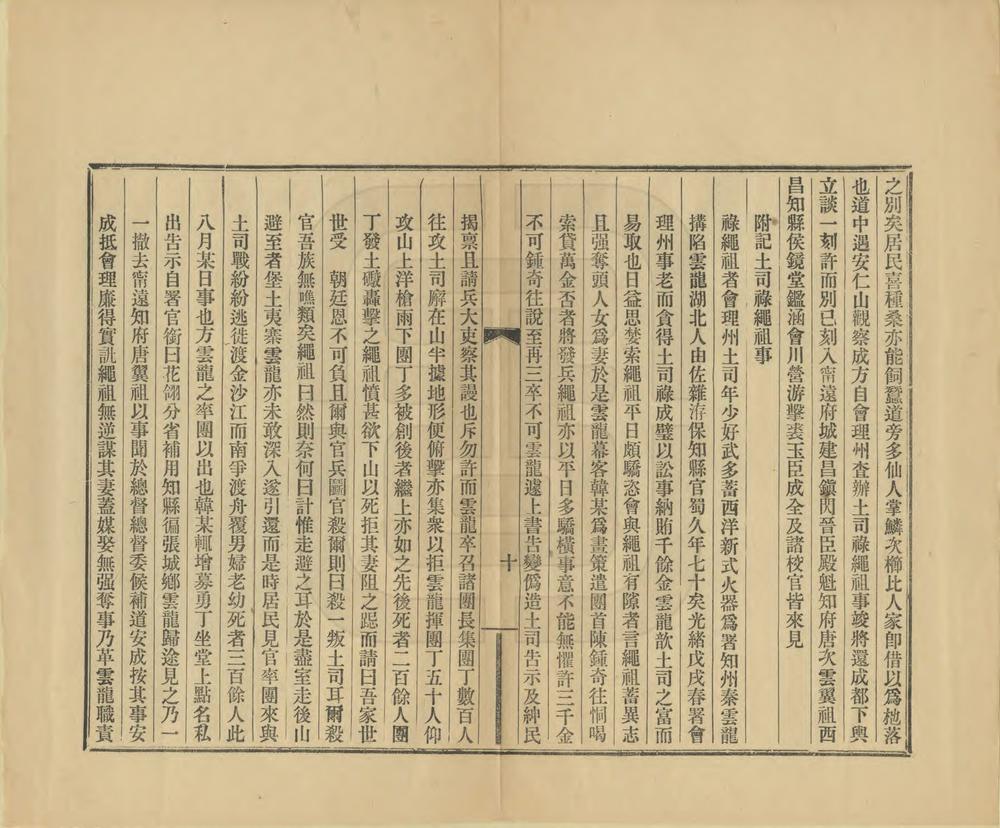 之別矣居民喜種桑亦能飼蠶道旁多仙人掌鱗次櫛比人家卽借以爲杝落
也道中遇安仁山觀察成方自會理州查辦土司祿繩祖事竣將還成都下輿
立談一刻許而別已刻入甯遠府城建昌鎭閃晉臣殿魁知府唐次雲翼祖西
昌知縣侯鏡堂鑑涵會川營游擊裘玉臣成全及諸校官皆來見
附記土司祿繩祖事
祿繩祖者會理州土司年少好武多蓄西洋新式火器爲署知州秦雲龍
搆陷雲龍湖北人由佐雜洊保知縣官蜀久年七十矣光緒戊戌春署會
理州事老而貪得土司祿成璧以訟事納賄千餘金雲龍歆土司之富而
易取也日益思婪索繩祖平日頗驕恣會與繩祖有隙者言繩祖蓄異志
且强奪頭人女爲妻於是雲龍幕客韓某爲畫策遣團首陳鍾奇往恫喝
索貸萬金否者將發兵繩祖亦以平日多驕橫事意不能無懼許三千金
不可鍾奇往說至再三卒不可雲龍遽上書告變僞造土司告示及紳民
十
揭稟且請兵大吏察其謾也斥勿許而雲龍卒召諸團長集團丁數百人
往攻土司廨在山半據地形便俯擊亦集衆以拒雲龍揮團丁五十人仰
攻山上洋槍雨下團丁多被創後者繼上亦如之先後死者二百餘人團
丁發土礮轟擊之繩祖憤甚欲下山以死拒其妻阻之跽而請曰吾家世
世受　朝廷恩不可負且爾與官兵鬭官殺爾則曰殺一叛土司耳爾殺
官吾族無噍類矣繩祖曰然則奈何曰計惟走避之耳於是盡室走後山
避至者堡土夷寨雲龍亦未敢深入遂引還而是時居民見官率團來與
土司戰紛紛逃徙渡金沙江而南爭渡舟覆男婦老幼死者三百餘人此
八月某日事也方雲龍之率團以出也韓某輒增募勇丁坐堂上點名私
出告示自署官銜曰花翎分省補用知縣徧張城鄉雲龍歸途見之乃一
一撤去甯遠知府唐翼祖以事聞於總督總督委候補道安成按其事安
成抵會理廉得實訿繩祖無逆謀其妻蓋媒娶無强奪事乃革雲龍職責